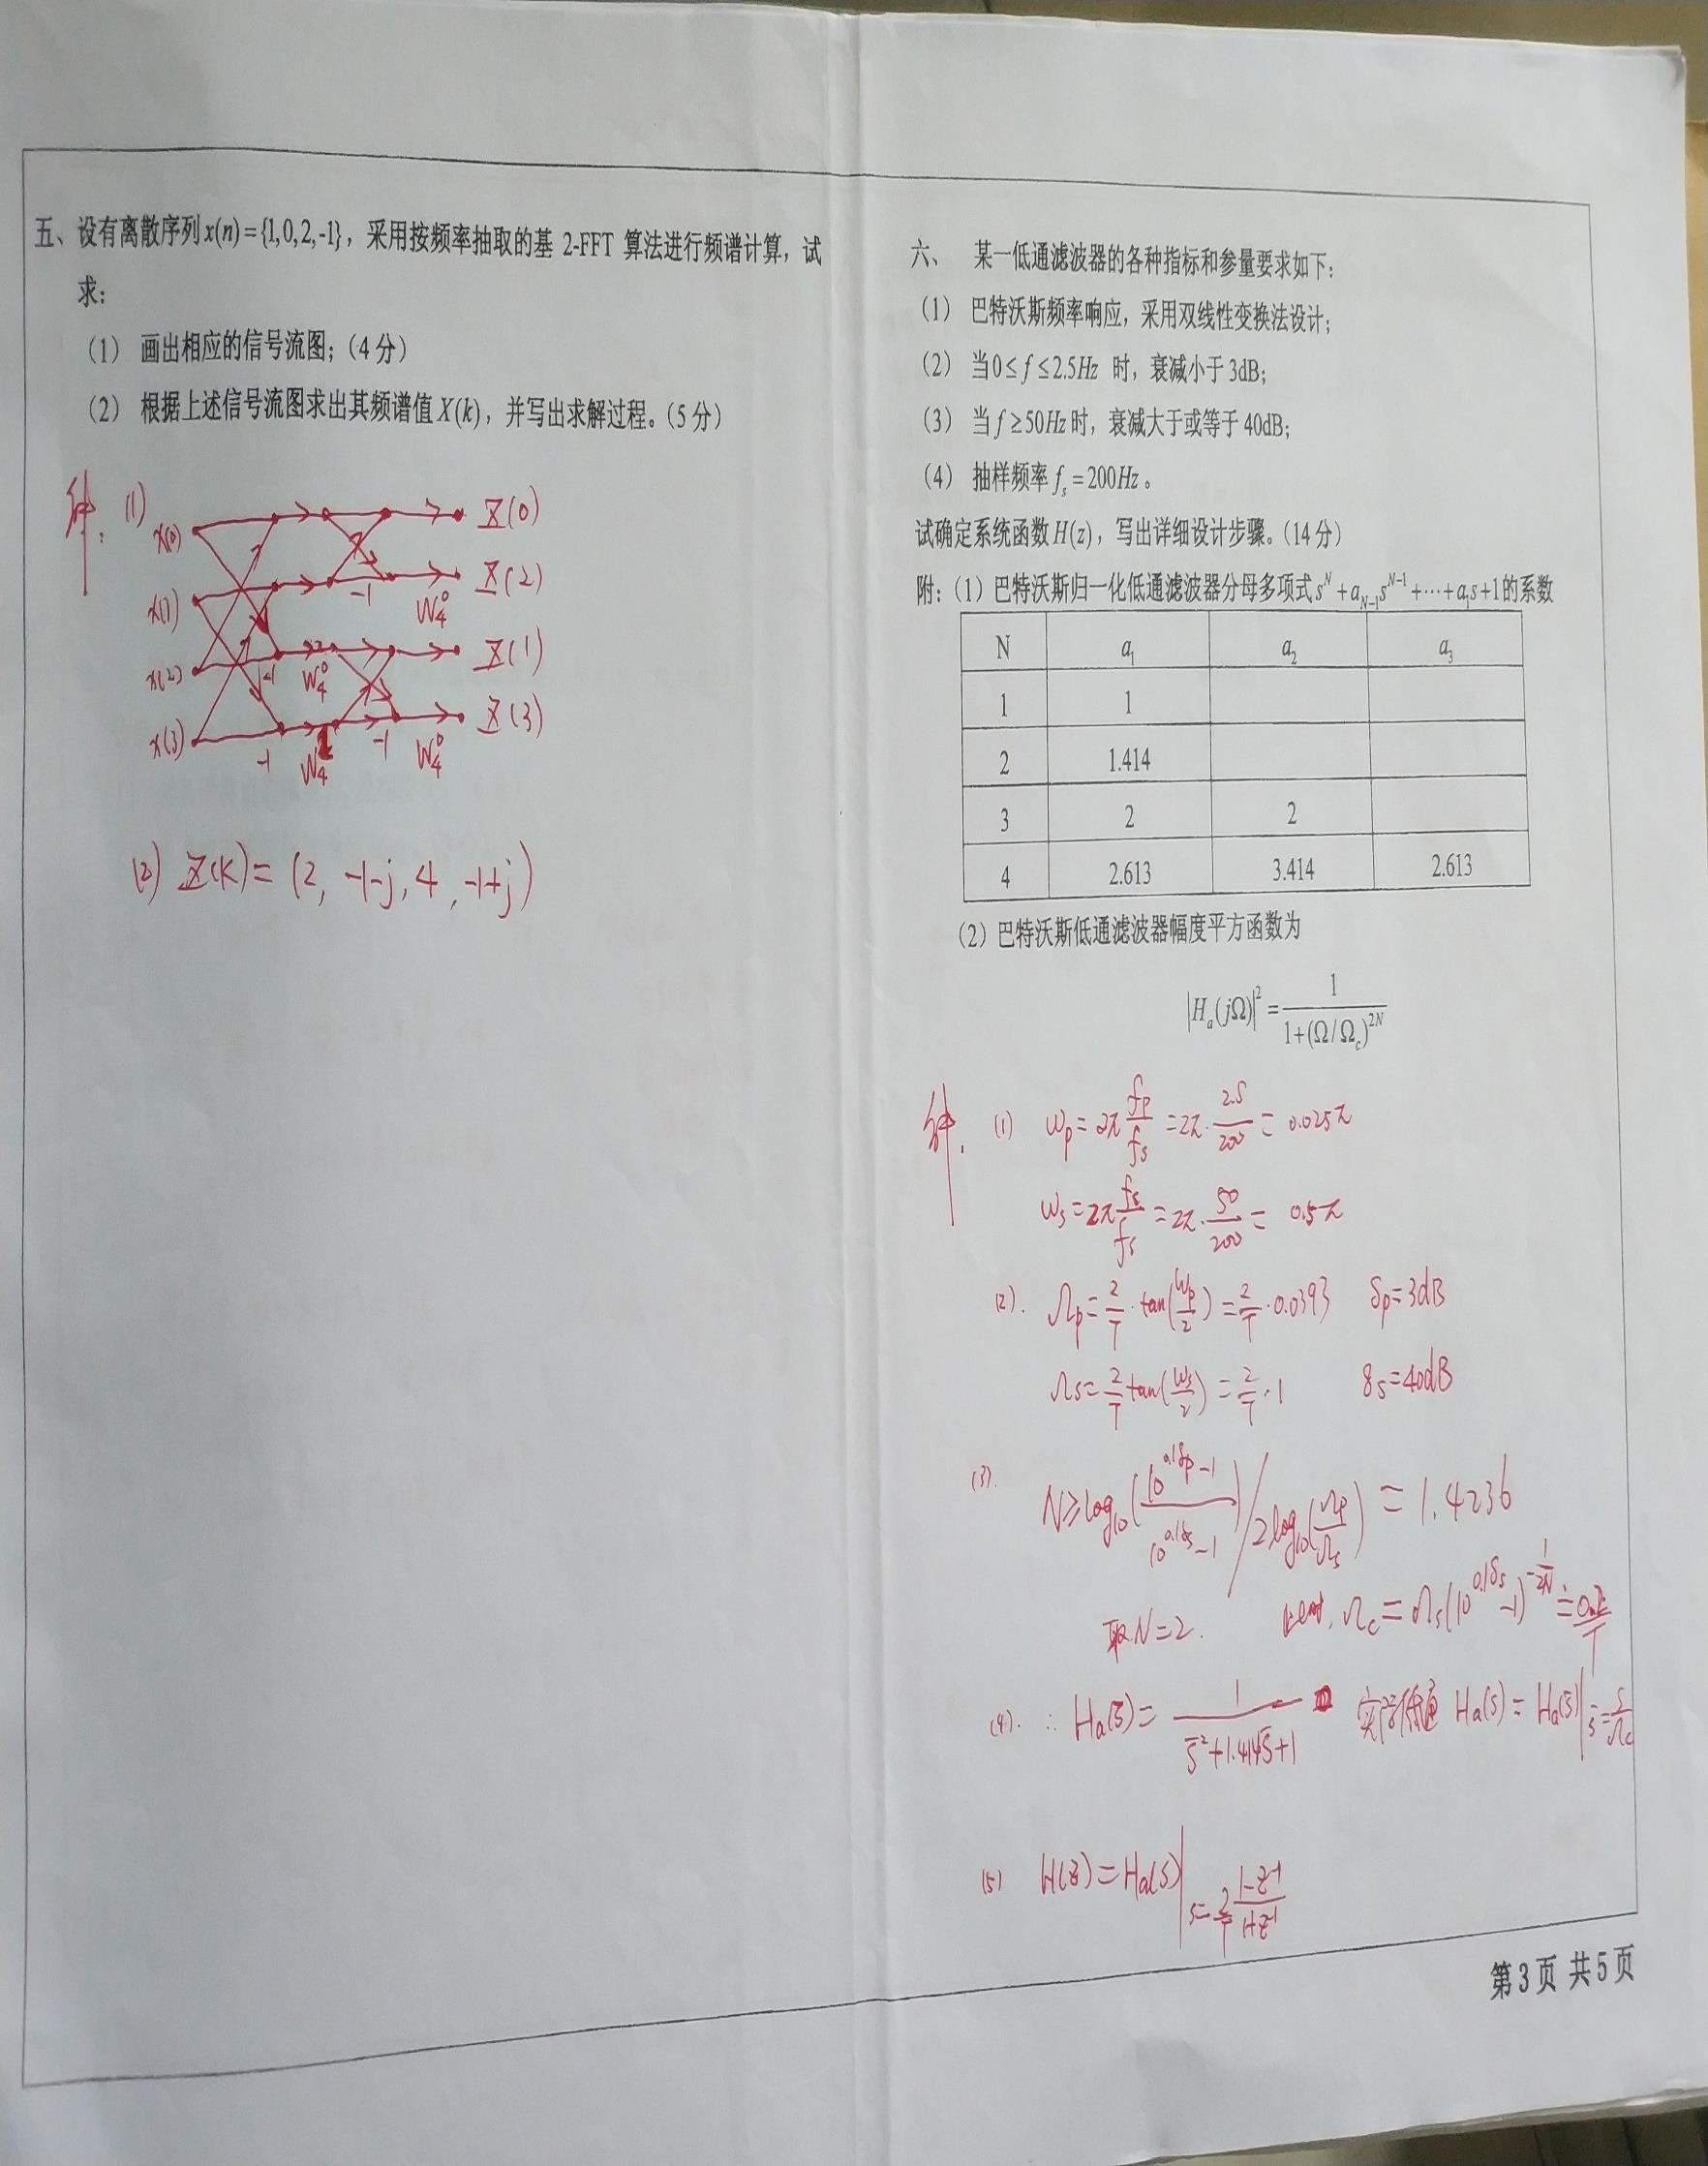 五、设有离散序列x(n)={1,0,2,-1}，采用按频率抽取的基 2-FFT 算法进行频谱计算，试
求：
（1） 画出相应的信号流图；（4 分）
（2） 根据上述信号流图求出其频谱值 X(k)，并写出求解过程。（5 分）
解: (1)
x(0) X(0)
x(1) -1 W₄⁰ X(2)
x(2) -1 W₄⁰ X(1)
x(3) -1 W₄¹ -1 W₄⁰ X(3)
(2) X(k)= (2, -1-j, 4, -1+j)
六、 某一低通滤波器的各种指标和参量要求如下：
（1） 巴特沃斯频率响应，采用双线性变换法设计；
（2） 当0≤f≤2.5Hz 时，衰减小于 3dB；
（3） 当f≥50Hz时，衰减大于或等于 40dB；
（4） 抽样频率 fₛ=200Hz。
试确定系统函数H(z)，写出详细设计步骤。（14 分）
附：（1）巴特沃斯归一化低通滤波器分母多项式 s^N+a_{N-1}s^{N-1}+⋯+a₁s+1的系数
N a₁ a₂ a₃
1 1
2 1.414
3 2 2
4 2.613 3.414 2.613
（2）巴特沃斯低通滤波器幅度平方函数为
|Hₐ(jΩ)|²=1/(1+(Ω/Ω_c)^{2N})
解. (1) ωp=2π fp/fs =2π·2.5/200= 0.025π
ωs=2π fs/fs =2π·50/200= 0.5π
(2). Ωp=2/T·tan(ωp/2)=2/T·0.0393 δp=3dB
Ωs=2/T tan(ωs/2)=2/T·1 δs=40dB
(3). N≥log₁₀((10^{0.1δp}-1)/(10^{0.1δs}-1))/2log₁₀(Ωp/Ωs) = 1.4236
取N=2. 此时, Ωc=Ωs(10^{0.1δs}-1)^{-1/2N}=
(4). ∴ Ha(s̄)=1/(s̄²+1.414s̄+1) 实际低通 Ha(s)=Ha(s̄)|s̄=s/Ωc
(5) H(z)=Ha(s)|s=2/T (1-z⁻¹)/(1+z⁻¹)
第3页 共5页